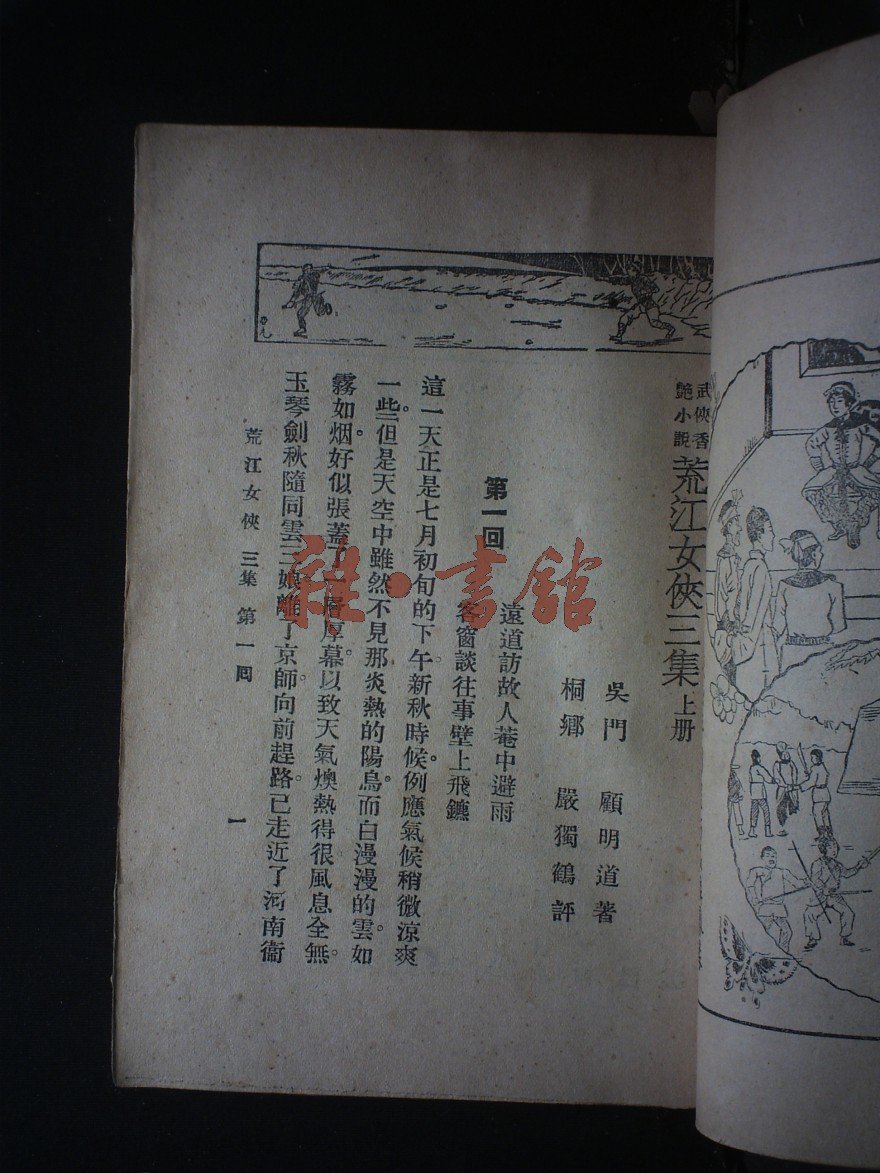 武俠香
艷小說
荒江女俠三集 上册
吳門 顧明道著
桐鄉 嚴獨鶴評
第一回
遠道訪故人菴中避雨
客窗談往事壁上飛鑣
這一天正是七月初旬的下午新秋時候。例應氣候稍微涼爽
一些。但是天空中雖然不見那炎熱的陽烏。而白漫漫的雲如
霧如烟。好似張蓋了一層厚幕。以致天氣燠熱得很。風息全無。
玉琴劍秋隨同雲三娘離了京師。向前趕路。已走近了河南衞
荒江女俠 三集 第一回
一
雜·書館